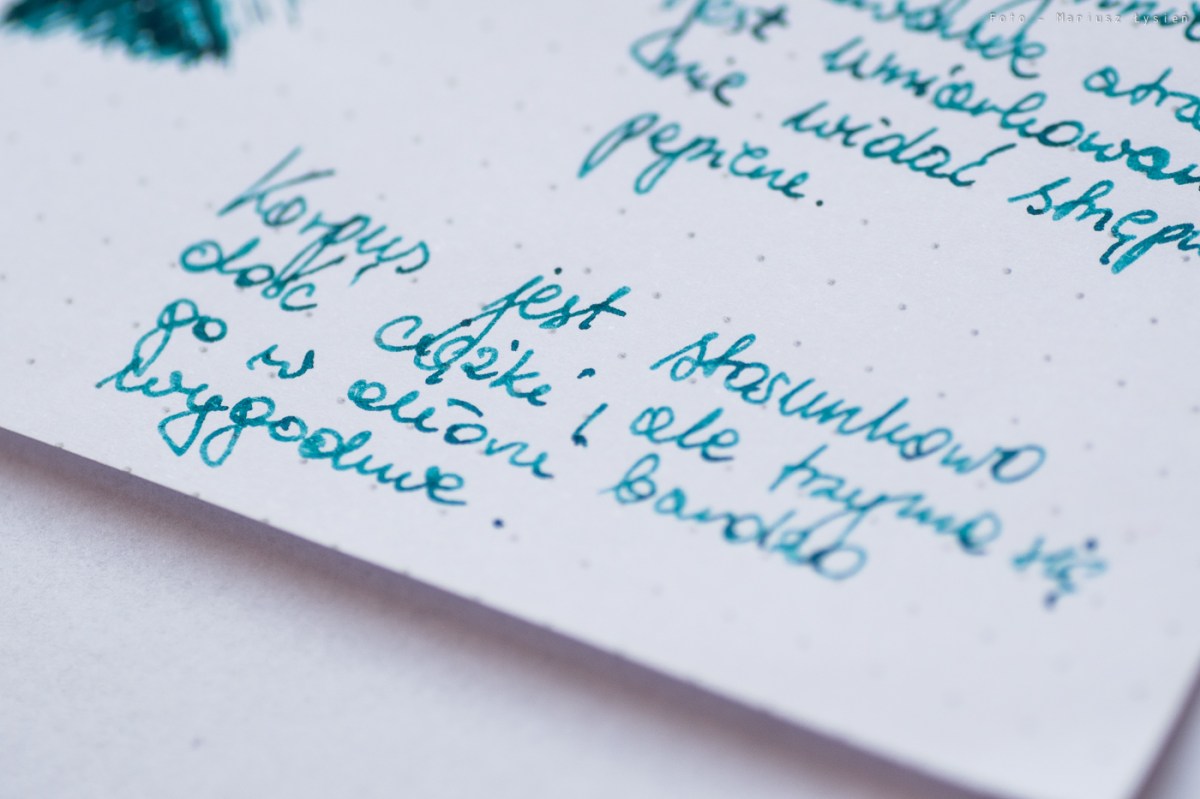 Foto - Mariusz
jest umiarkowan
nie widać strzęp
papierze.
Korpus jest stosunkowo
dość ciężki, ale trzyma się
go w dłoni bardzo
wygodnie.